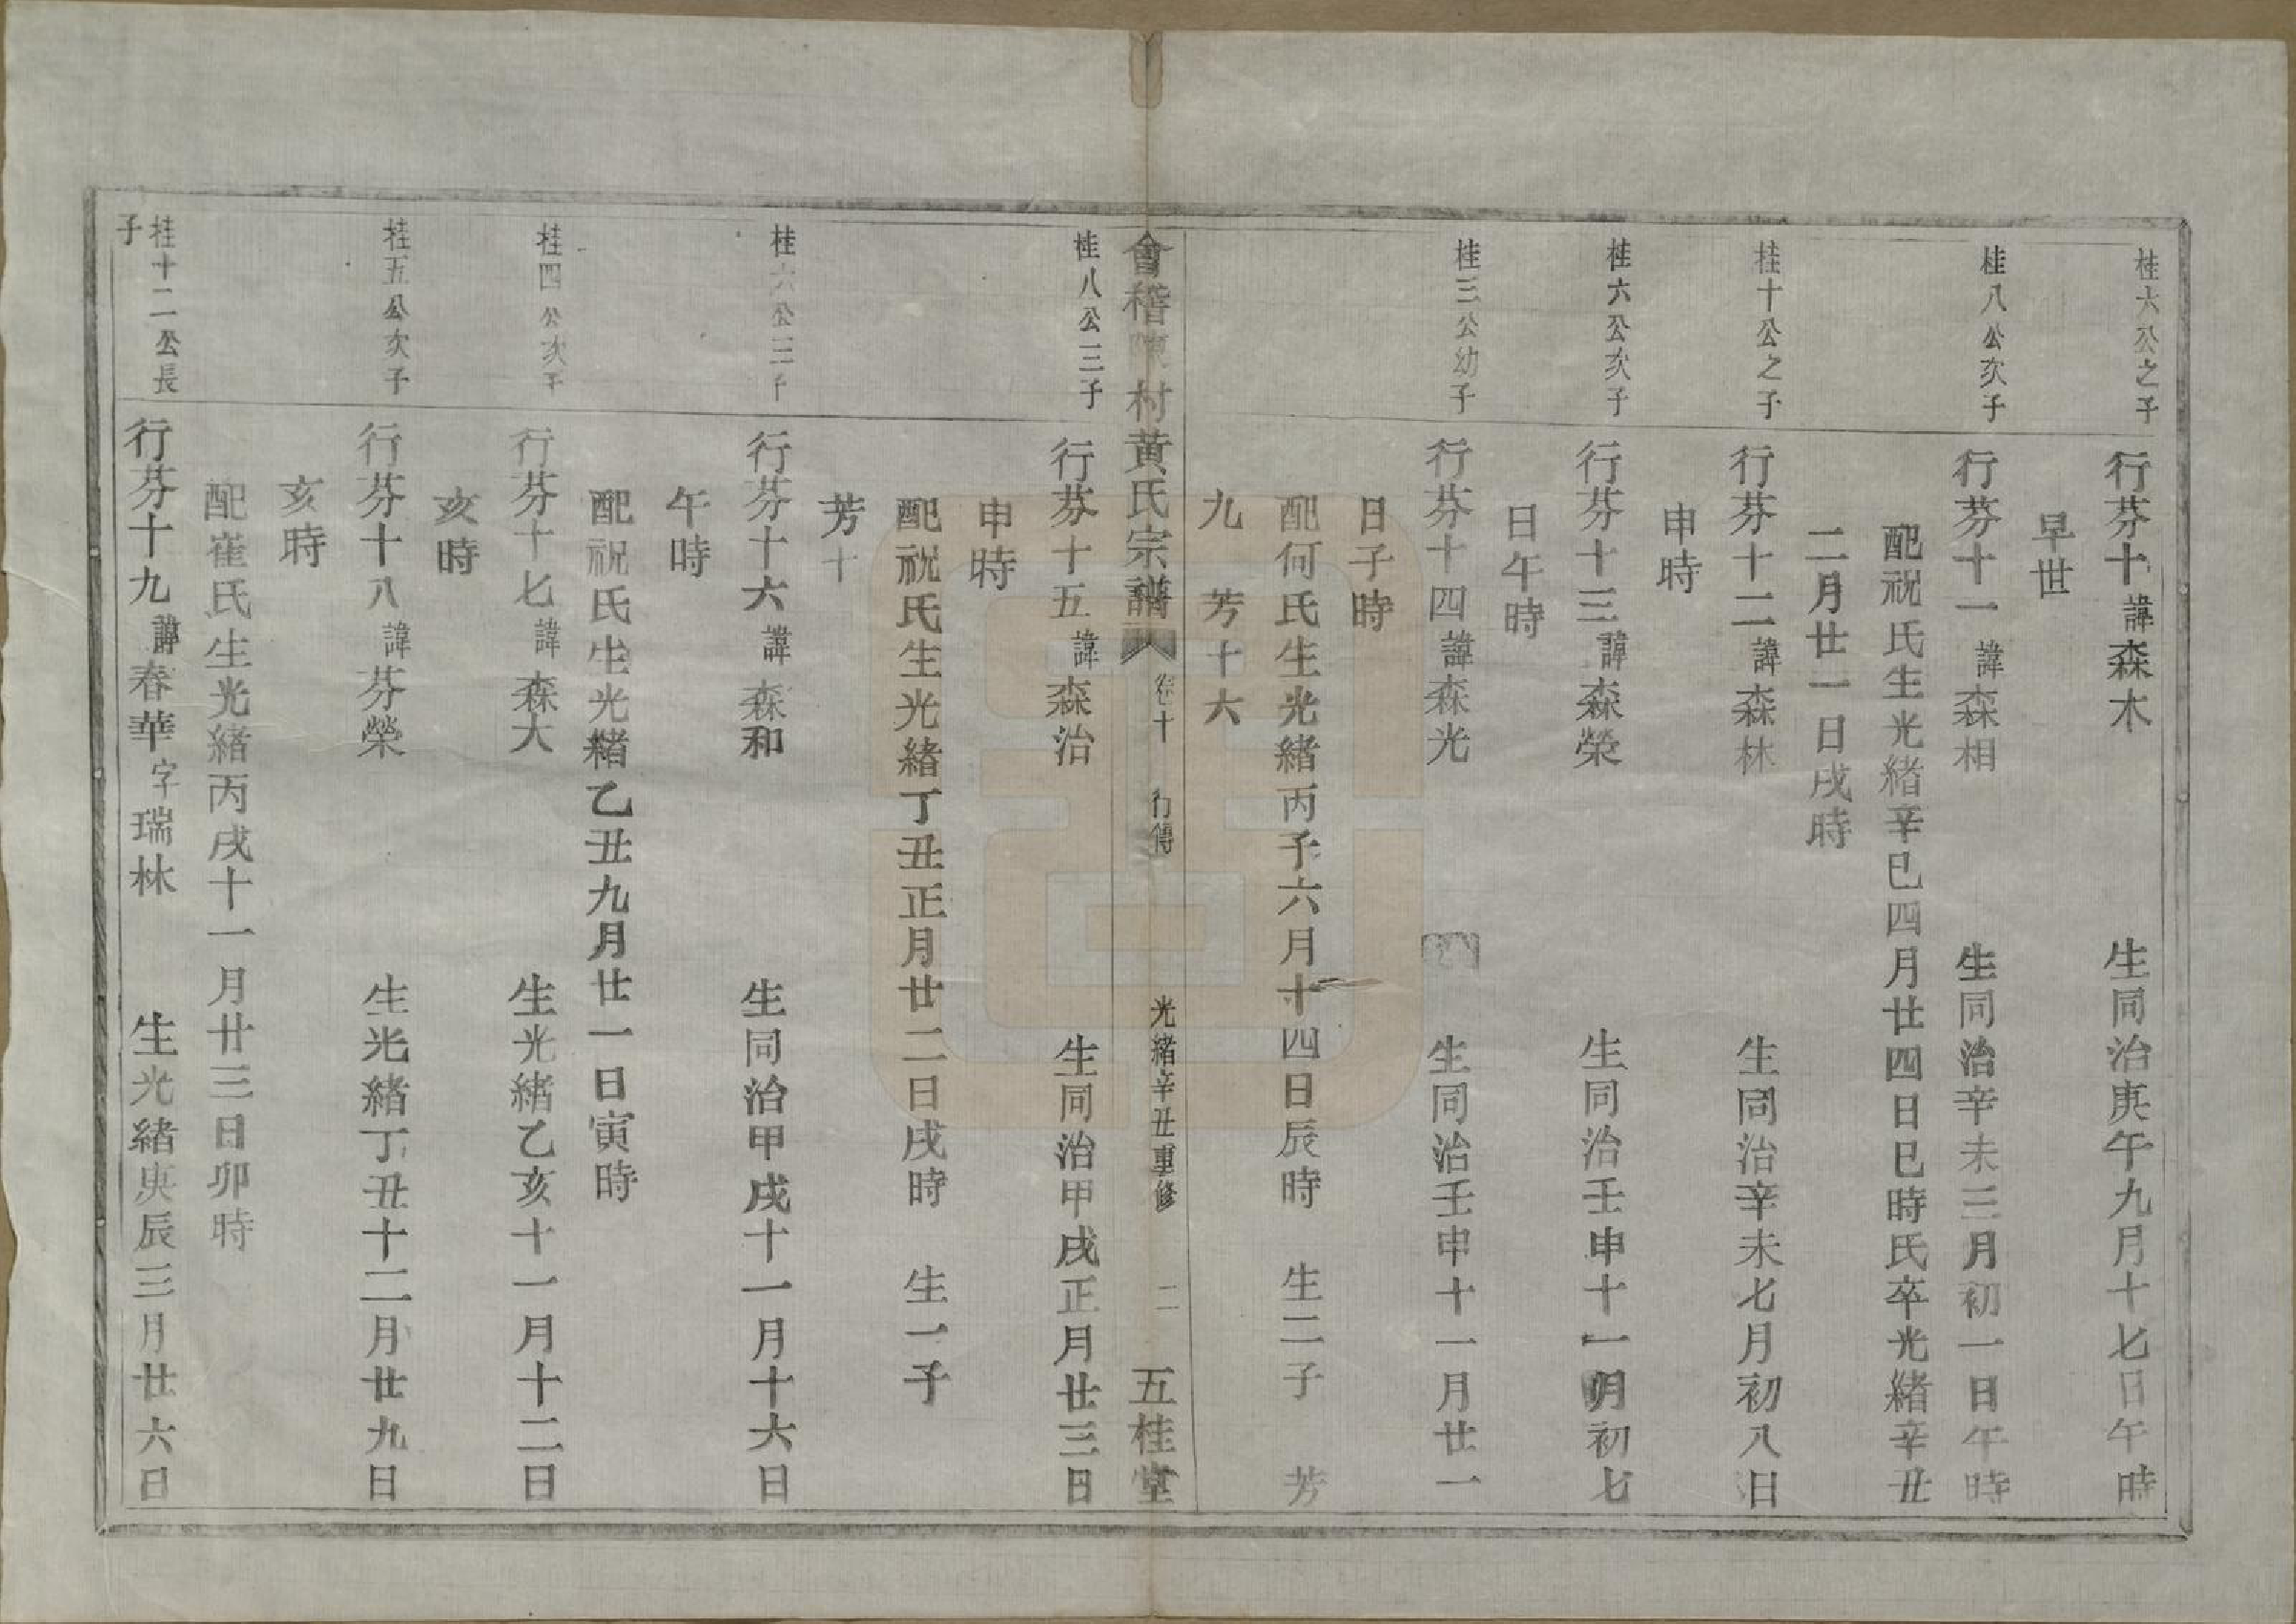 桂六公之子
行芬十諱森木 生同治庚午九月十七日午時
早世
桂八公次子
行芬十一諱森相 生同治辛未三月初一日午時
配祝氏生光緒辛巳四月廿四日巳時氏卒光緒辛丑
二月廿一日戌時
桂十公之子
行芬十二諱森林 生同治辛未七月初八日
申時
桂六公次子
行芬十三諱森榮 生同治壬申十一月初七
日午時
桂三公幼子
行芬十四諱森光 生同治壬申十一月廿一
日子時
配何氏生光緒丙子六月十四日辰時 生二子 芳
九 芳十六
會稽陳村黃氏宗譜 卷十 行傳 光緒辛丑重修 二 五桂堂
桂八公三子
行芬十五諱森治 生同治甲戌正月廿三日
申時
配祝氏生光緒丁丑正月廿二日戌時 生一子
芳十
桂六公三子
行芬十六諱森和 生同治甲戌十一月十六日
午時
配祝氏生光緒乙丑九月廿一日寅時
桂四公次子
行芬十七諱森大 生光緒乙亥十一月十二日
亥時
桂五公次子
行芬十八諱芬榮 生光緒丁丑十二月廿九日
亥時
配崔氏生光緒丙戌十一月廿三日卯時
桂十二公長
子
行芬十九諱春華字瑞林 生光緒庚辰三月廿六日